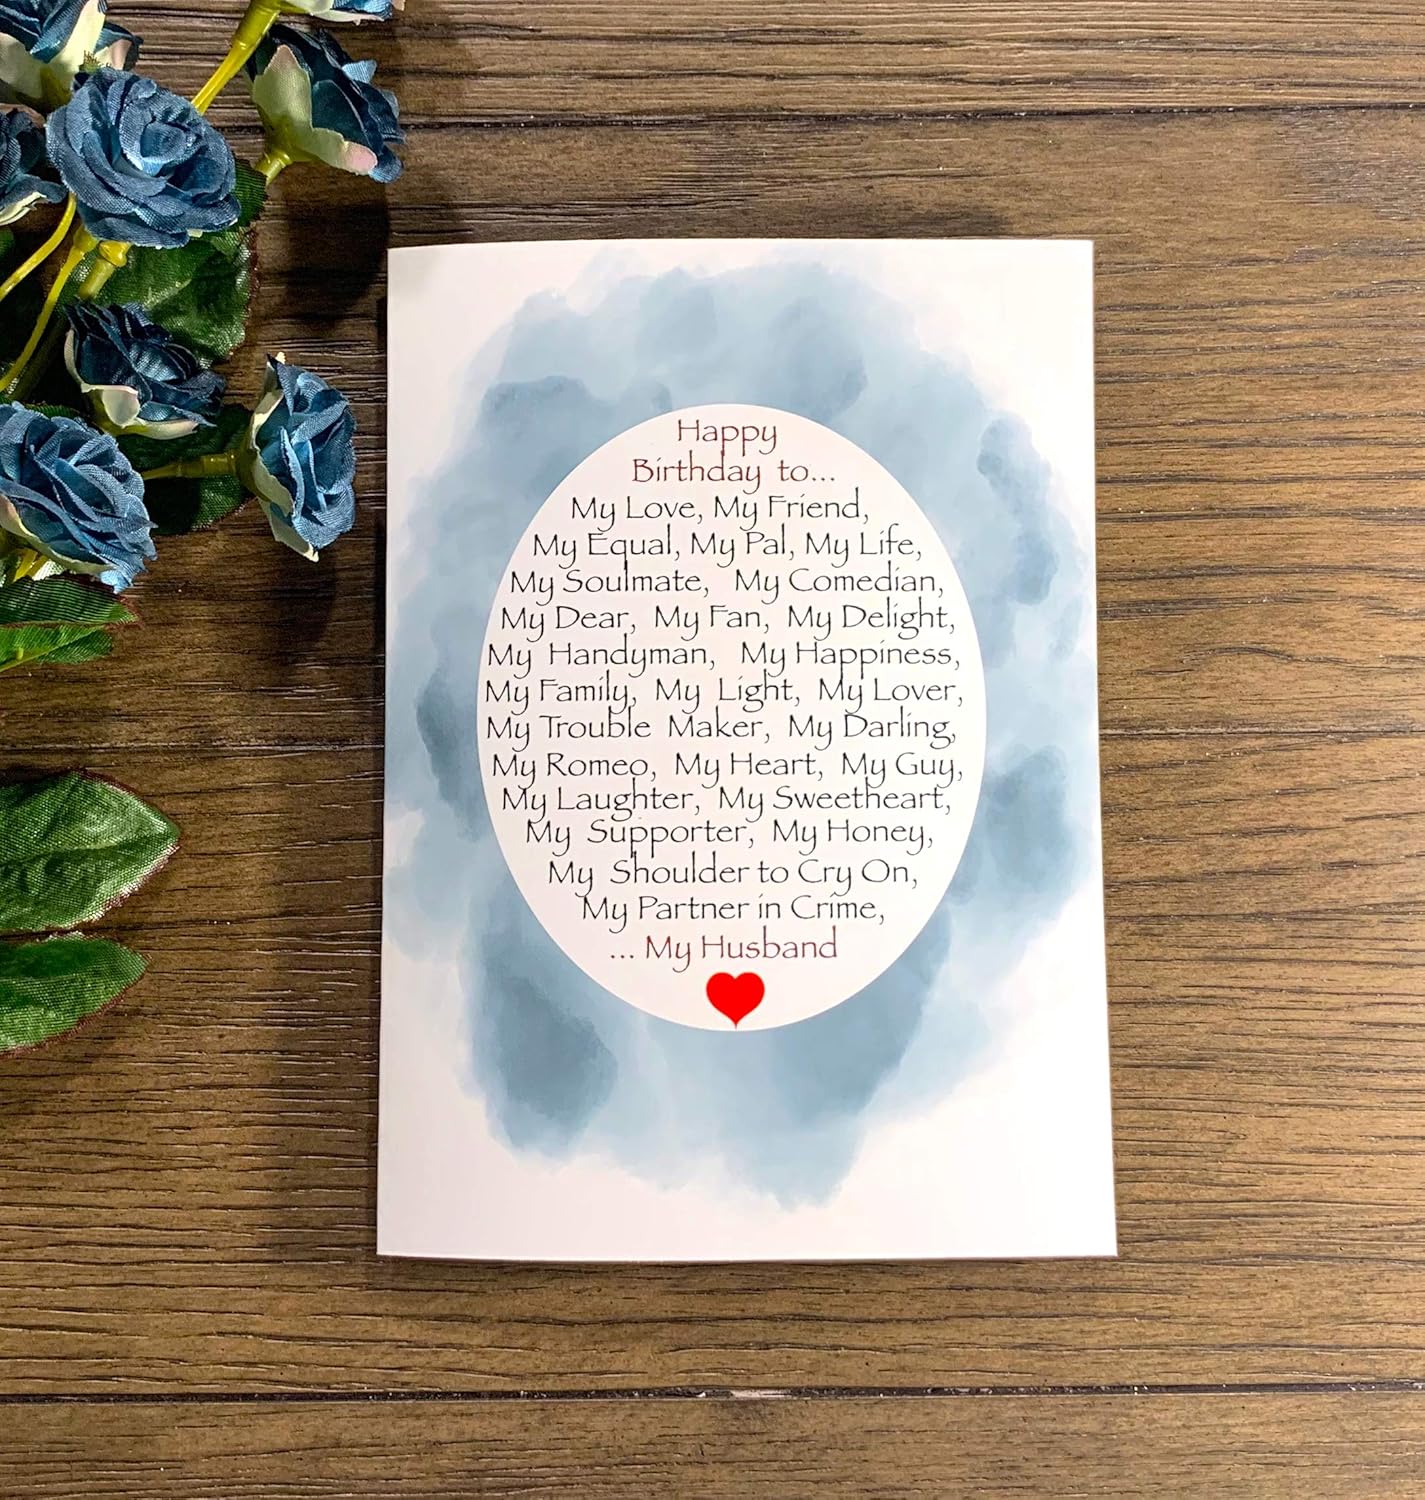 Happy
Birthday to...
My Love, My Friend,
My Equal, My Pal, My Life,
My Soulmate, My Comedian,
My Dear, My Fan, My Delight,
My Handyman, My Happiness,
My Family, My Light, My Lover,
My Trouble Maker, My Darling,
My Romeo, My Heart, My Guy,
My Laughter, My Sweetheart,
My Supporter, My Honey,
My Shoulder to Cry On,
My Partner in Crime,
... My Husband